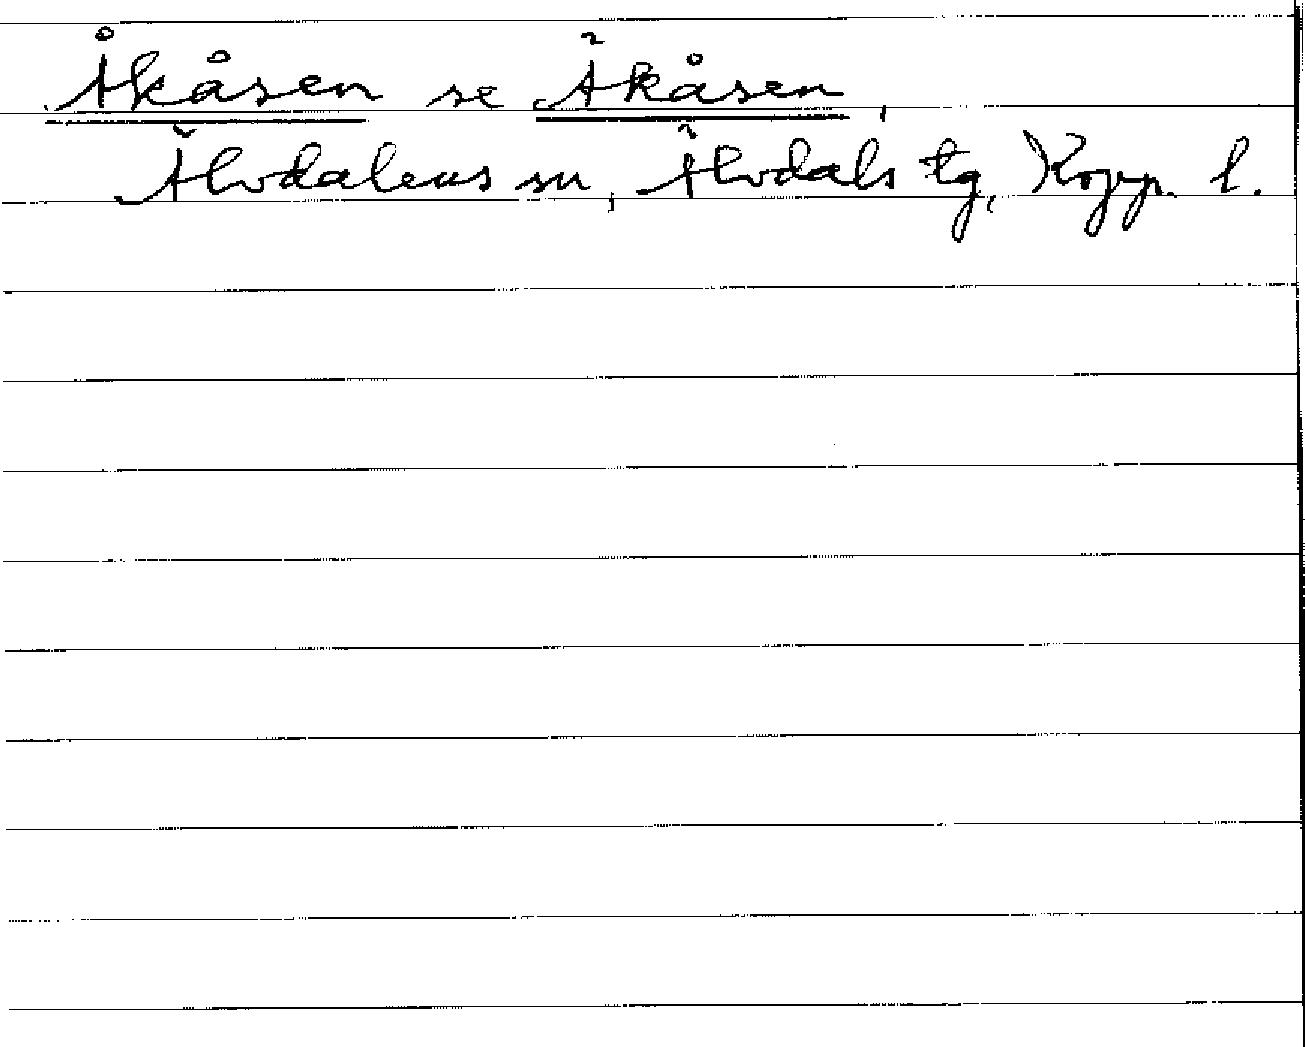 Åkåsen se Äkåsen,
Älvdalens sn, Älvdals tg, Kopp. l.